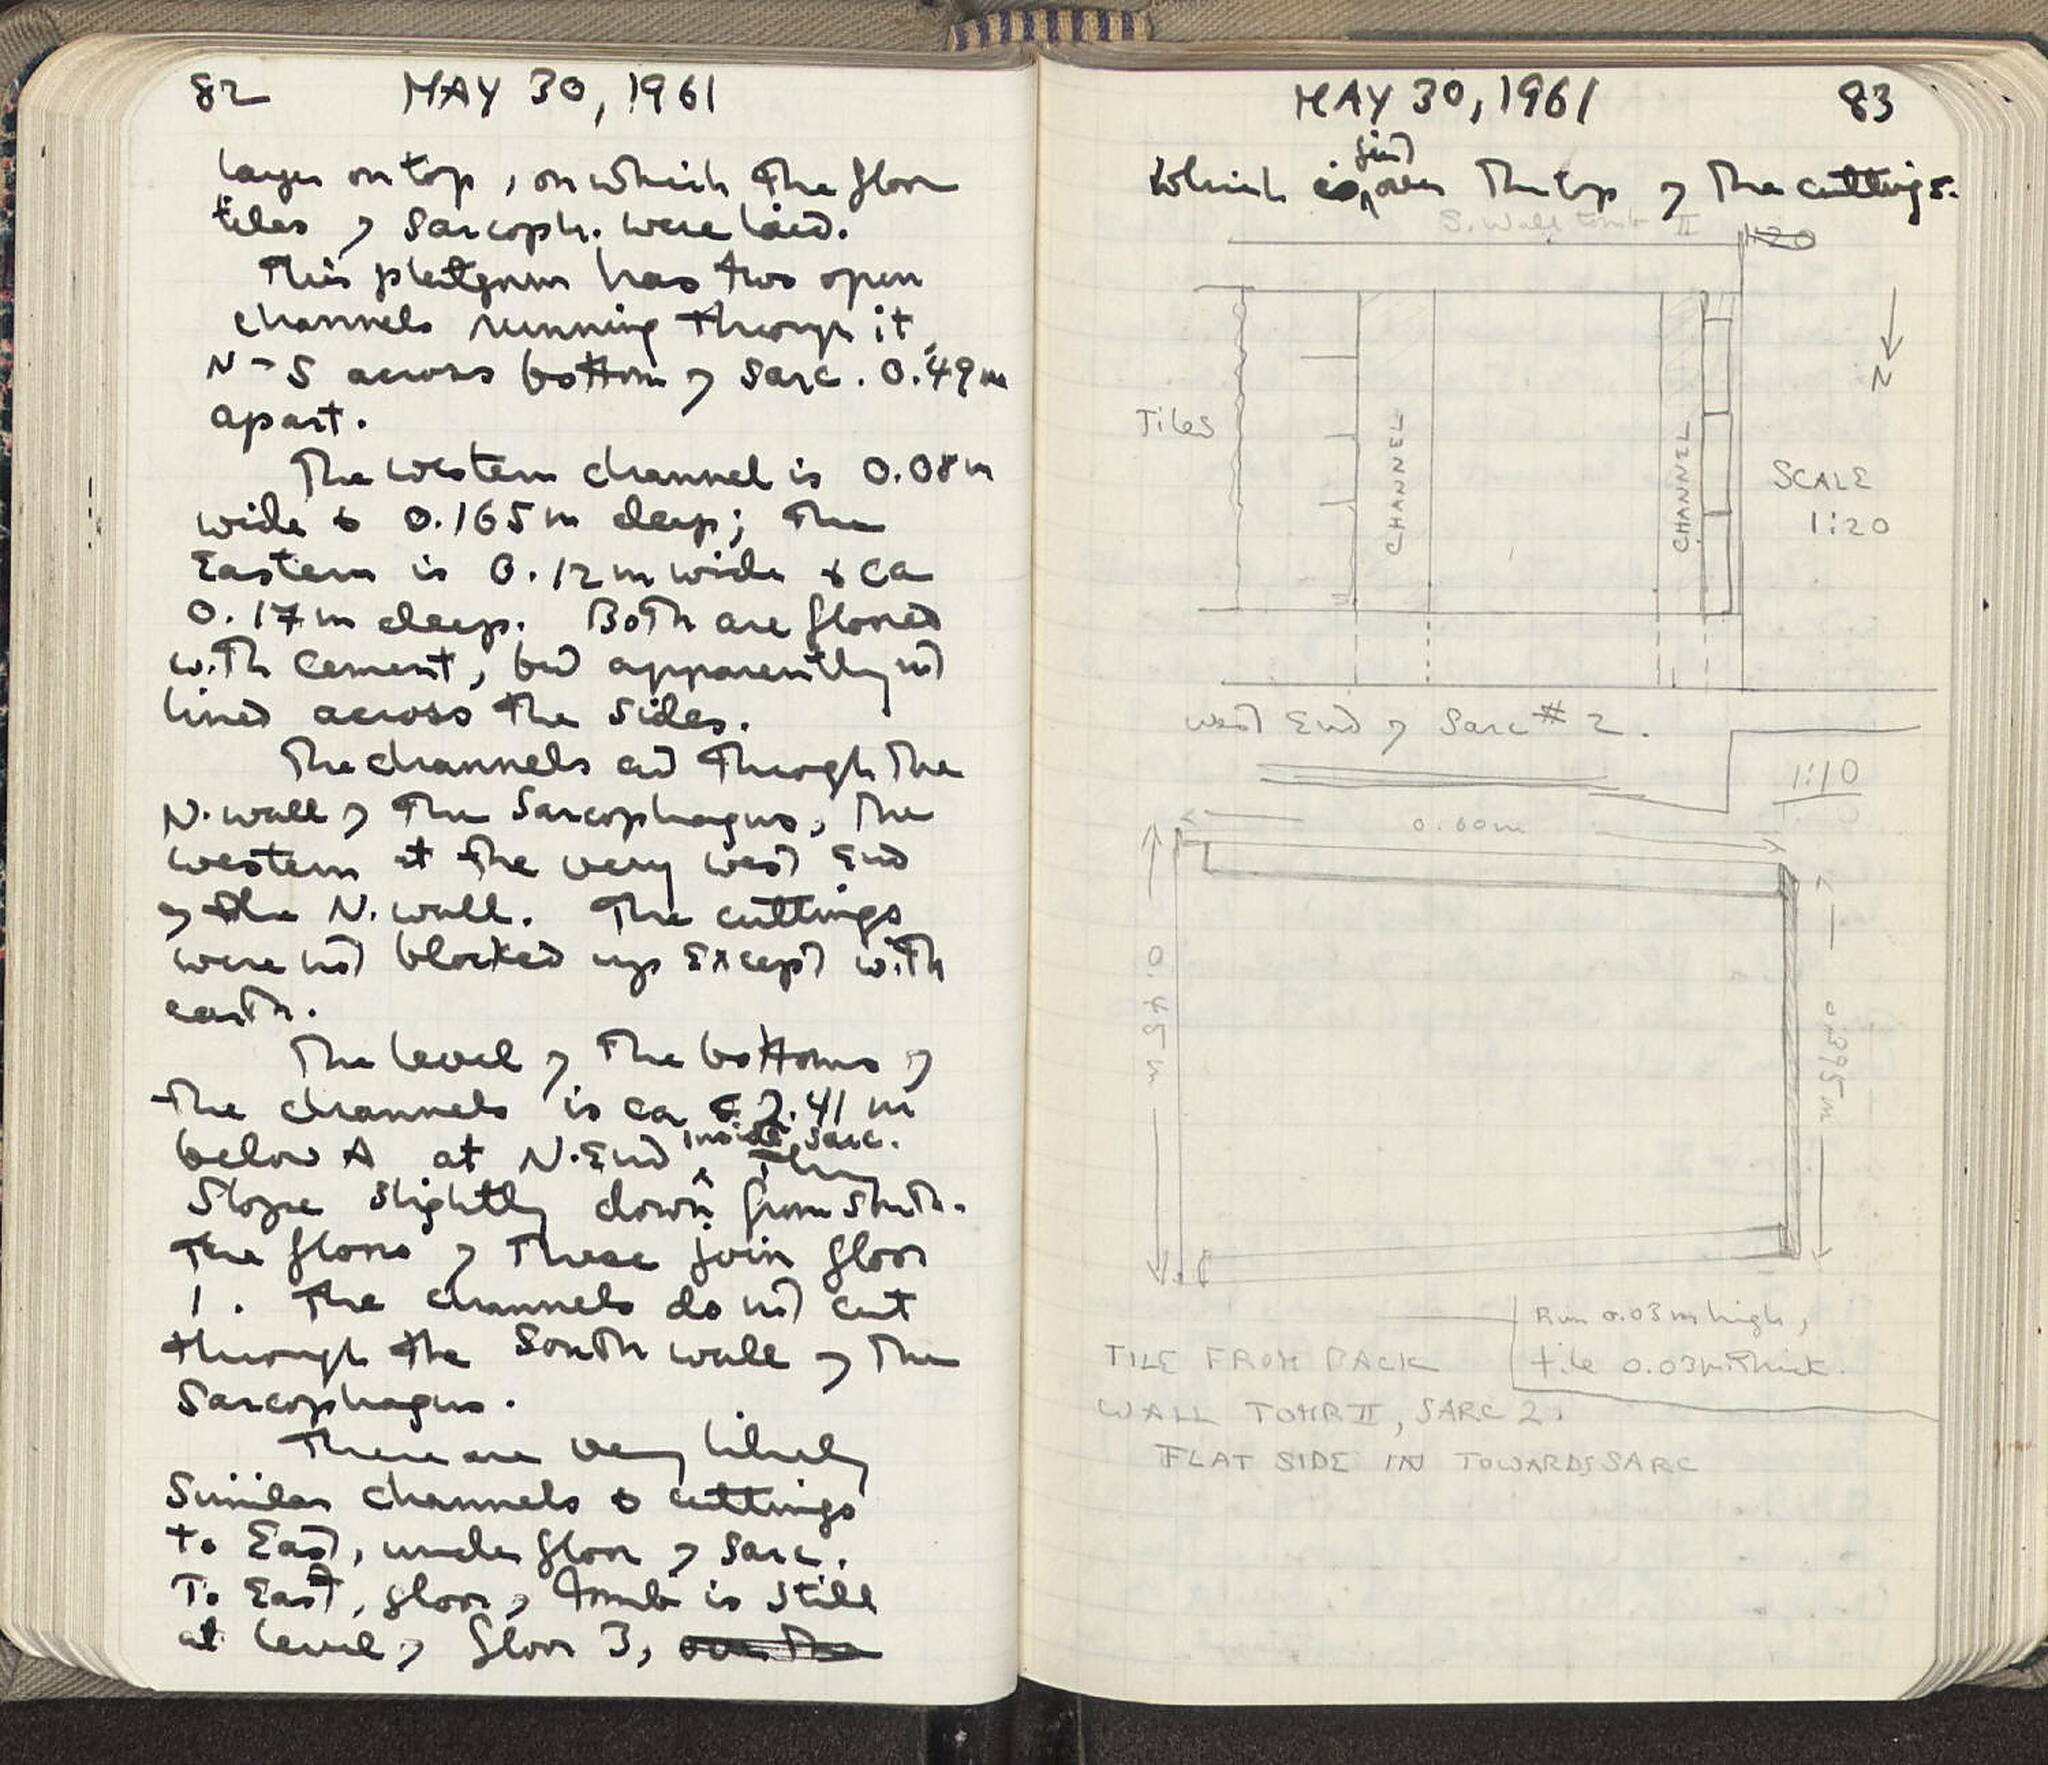 82 MAY 30, 1961
layer on top, on which the floor
tiles of Sarcoph. were laid.
This platform has two open
channels running through it,
N-S across bottom of Sarc. 0.49m
apart.
The western channel is 0.08m
wide & 0.165m deep; the
Eastern is 0.12m wide & ca
0.17m deep. Both are floored
with cement, but apparently not
lined across the sides.
The channels cut through the
N. wall of the Sarcophagus, the
western at the very west End
of the N. wall. The cuttings
were not blocked up Except with
earth.
The level of the bottoms of
the channels is ca 2.41 m
below A at N. End inside Sarc. They
slope slightly down from South.
The floors of these join floor
1. The channels do not cut
through the South wall of the
Sarcophagus.
There are very likely
similar channels & cuttings
to East, under floor of Sarc.
To East, floor of tomb is still
at level of floor 3, over the
MAY 30, 1961 83
which is just over the top of the cuttings.
S. Wall tomb II
1:20
N
Tiles
CHANNEL
CHANNEL
SCALE
1:20
West End of Sarc #2.
1:10
0.60m
0.45m
0.395m
Rim 0.03m high,
tile 0.03m thick.
TILE FROM BACK
WALL TOMB II, SARC 2.
FLAT SIDE IN TOWARDS SARC